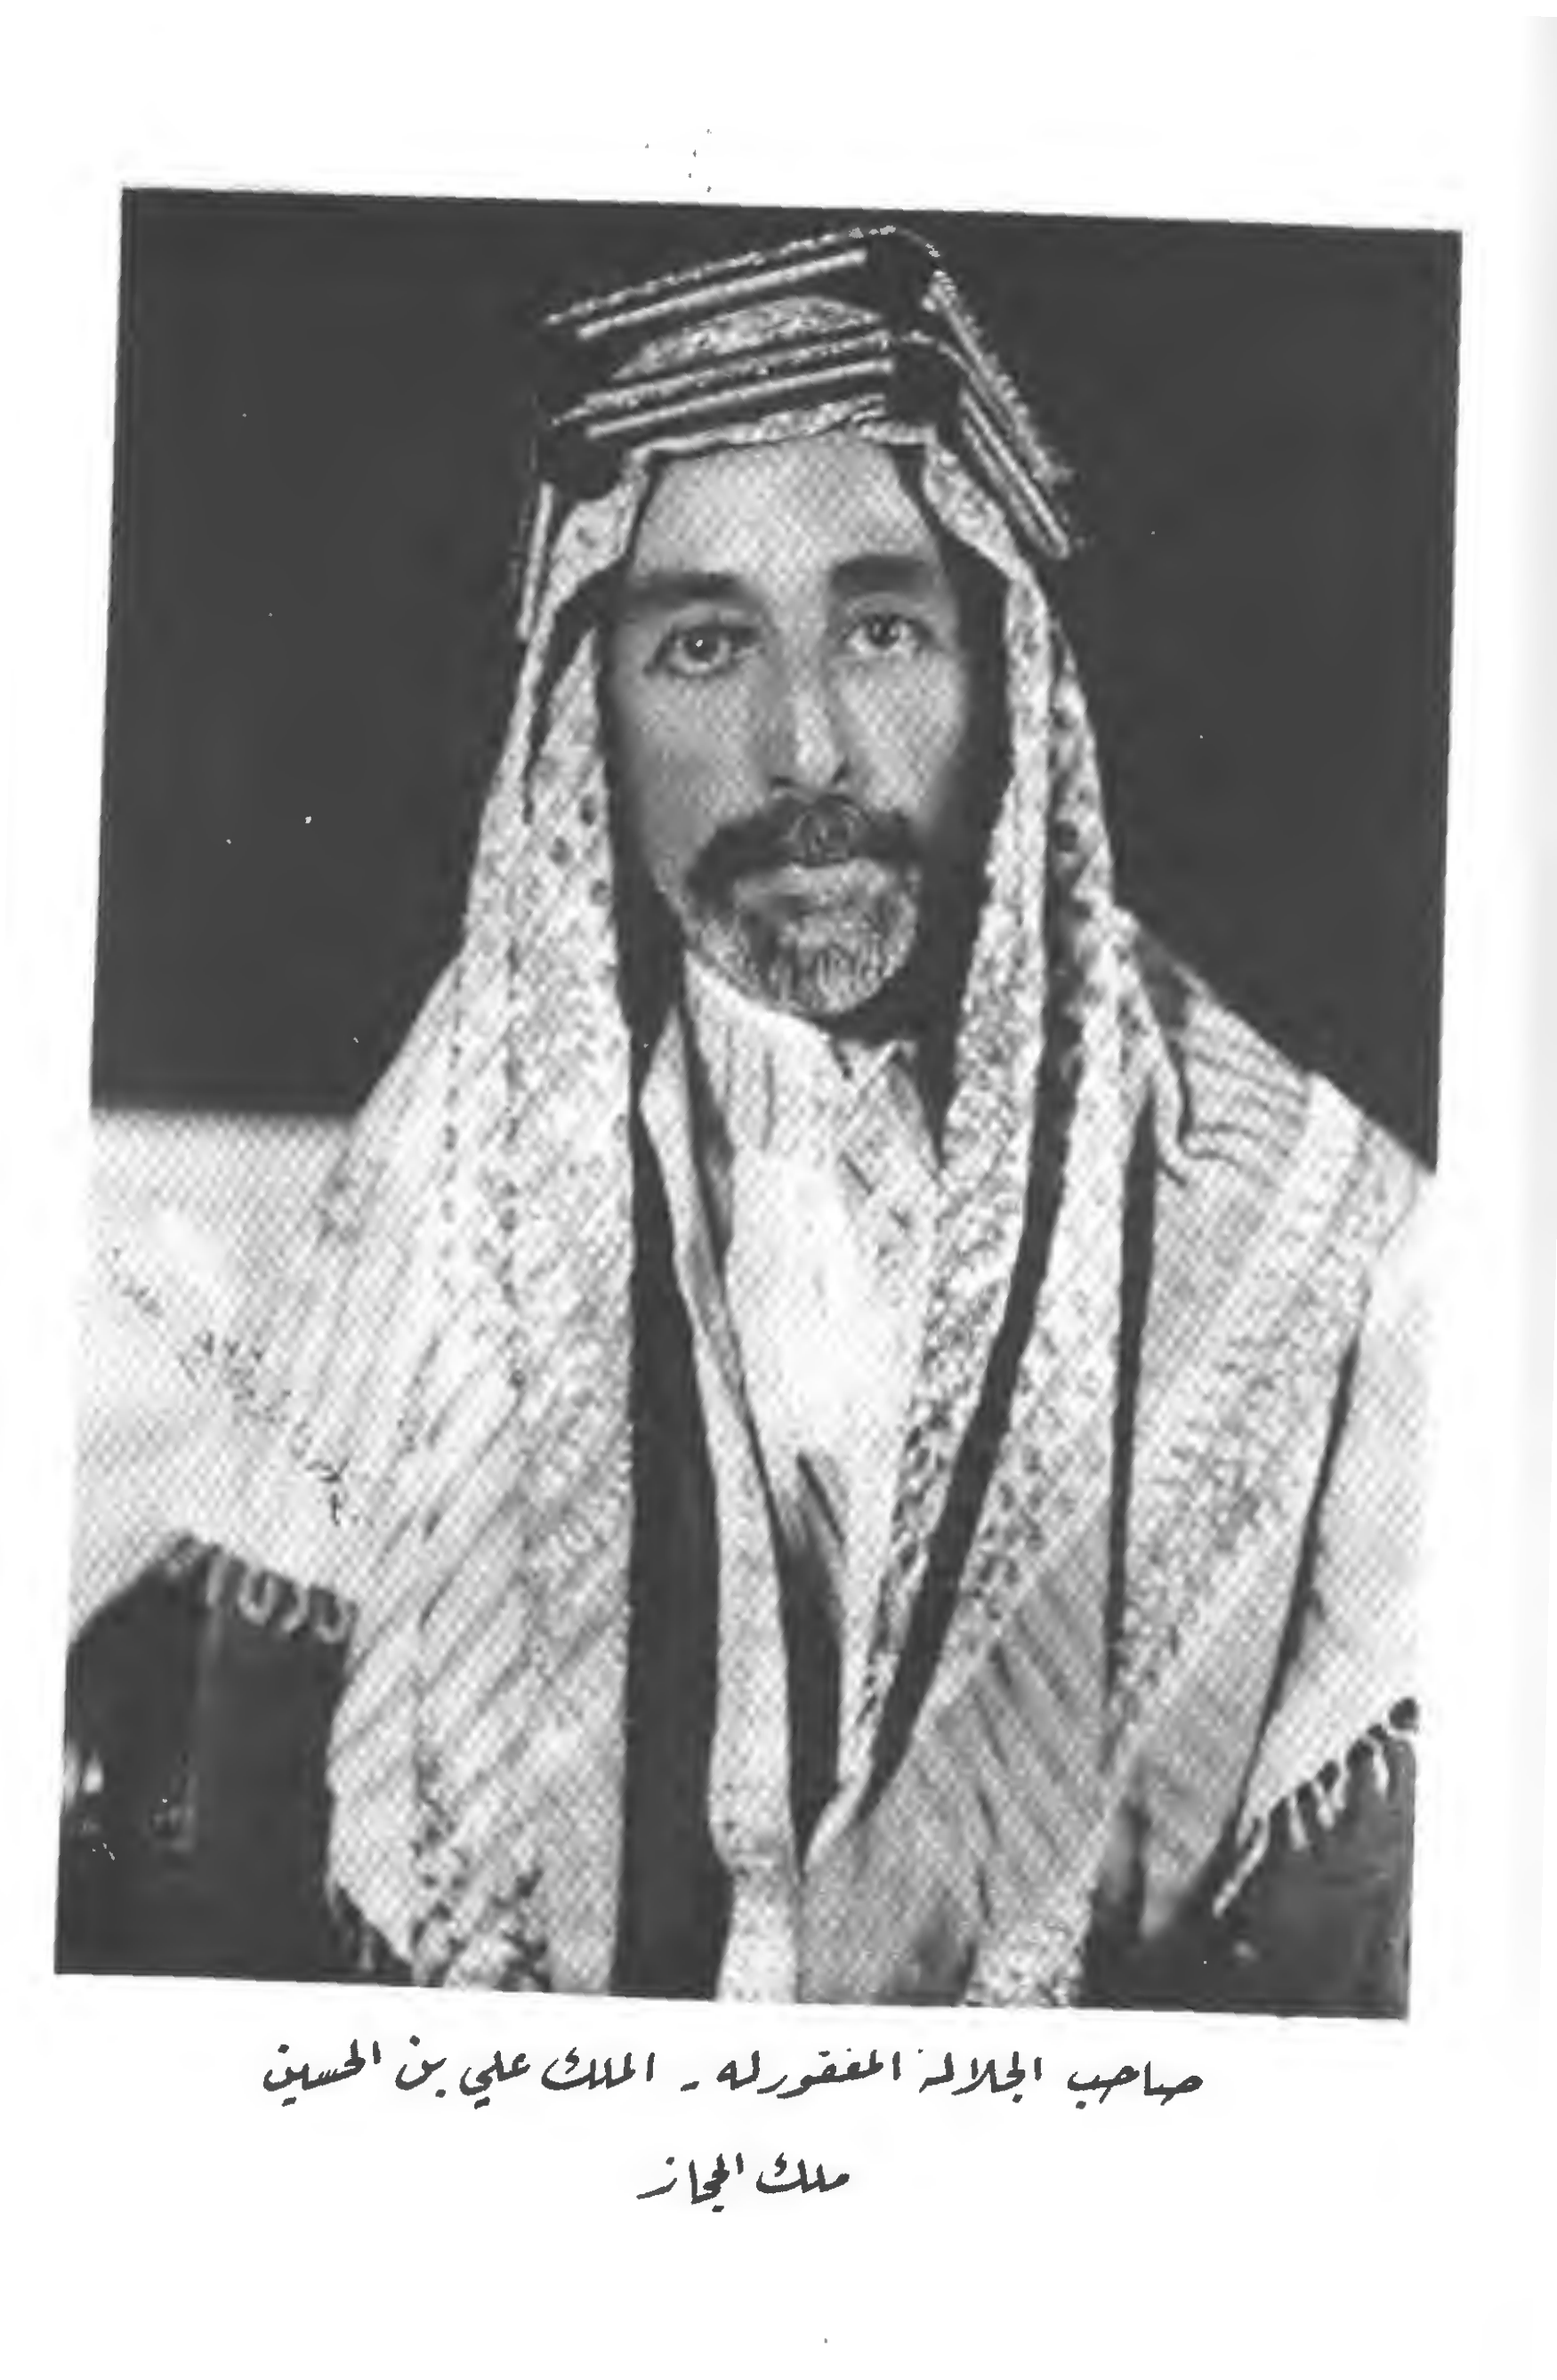 صاحب الجلالة المغفورله - الملك علي بن الحسين
ملك الحجاز